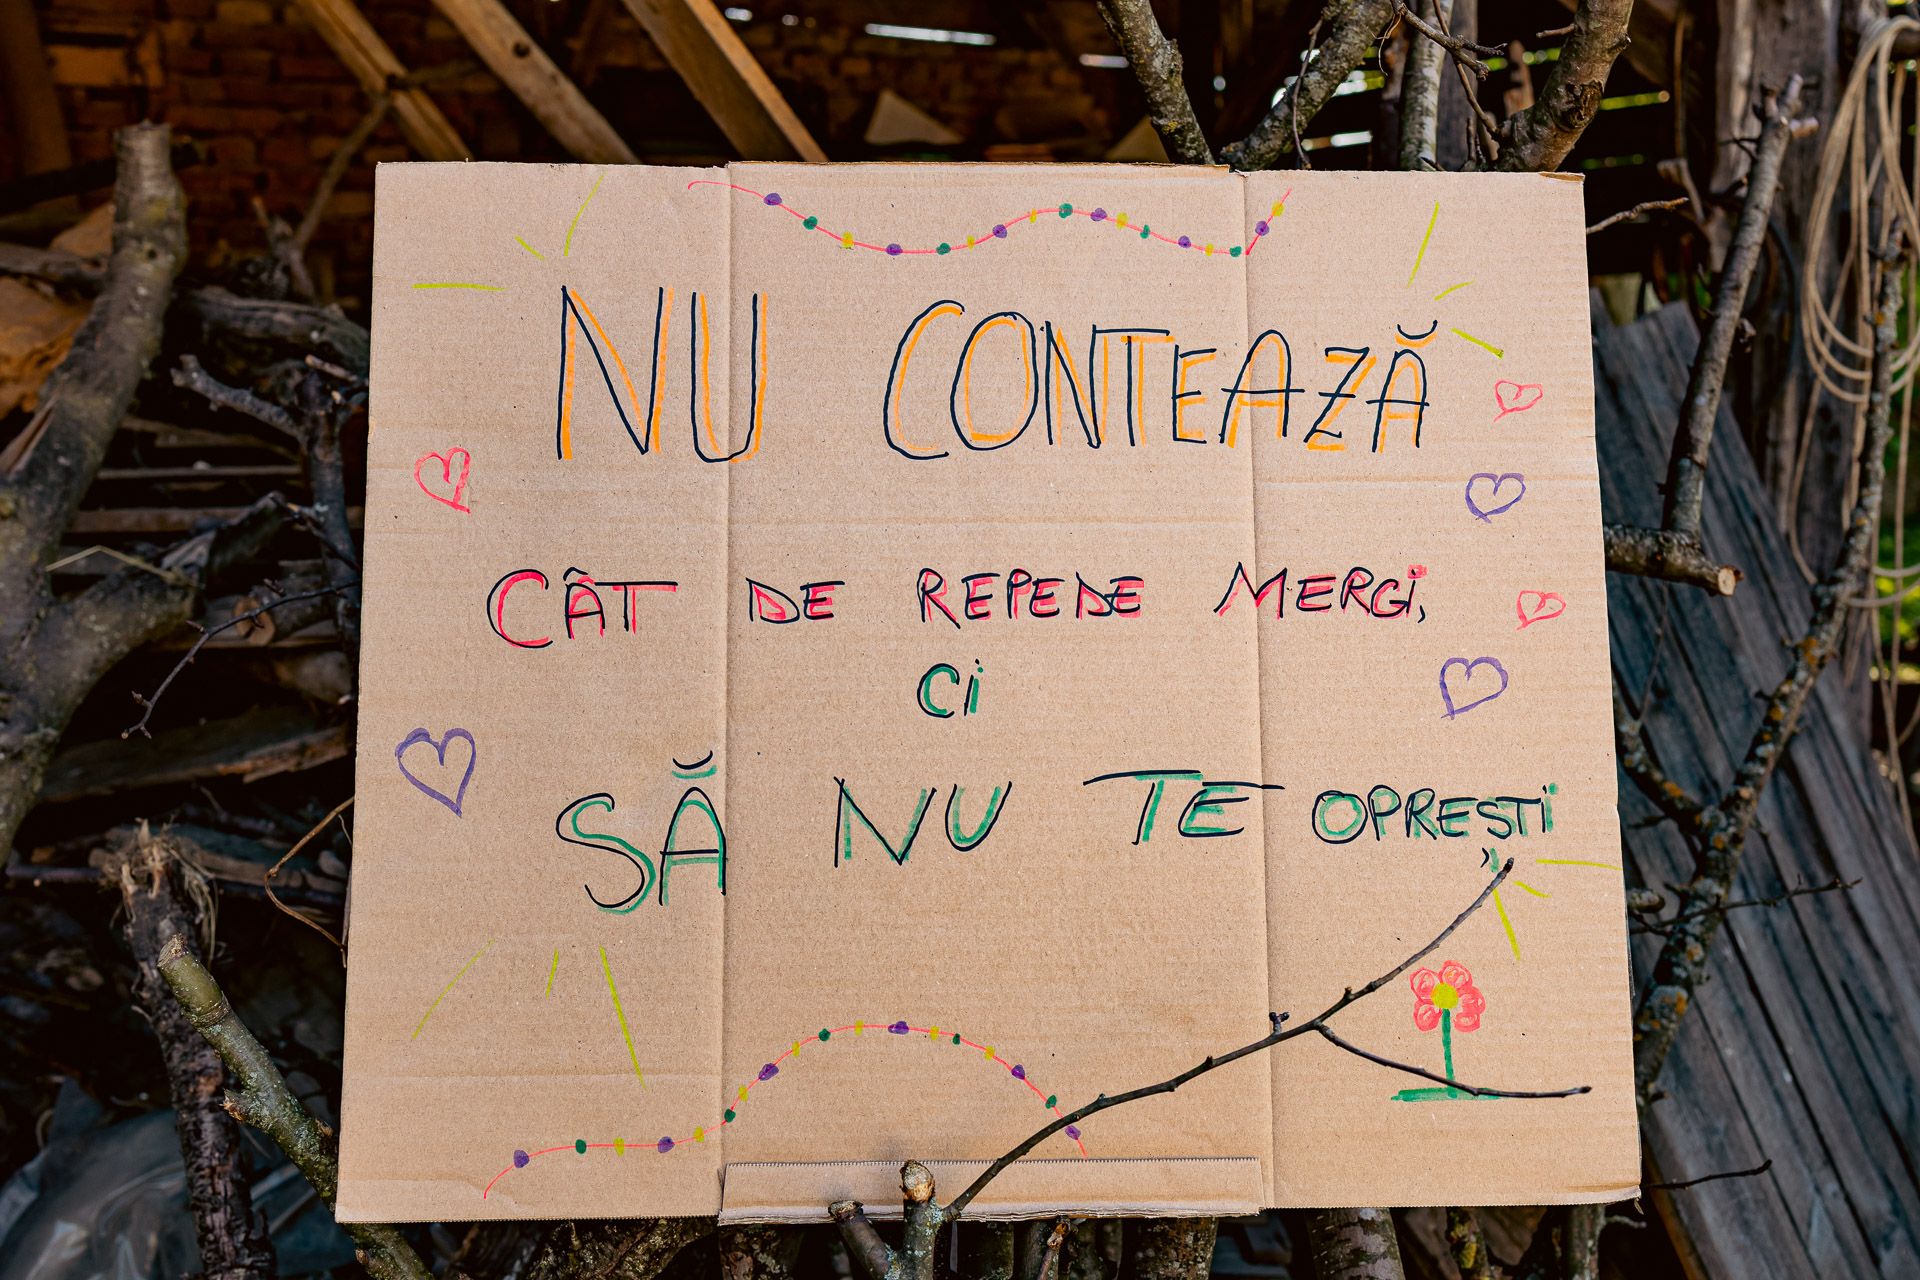 NU CONTEAZĂ
CÂT DE REPEDE MERGI,
Ci
SĂ NU TE OPREȘTI